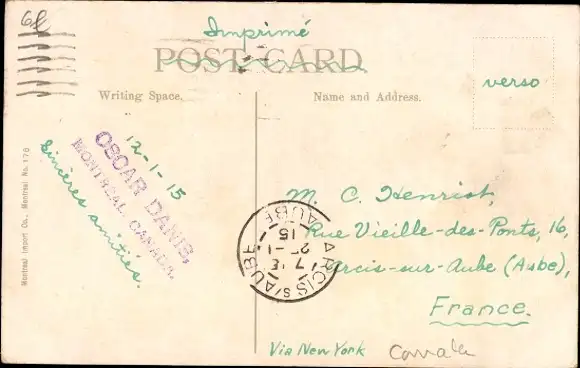 6
Imprimé
POST CARD
Writing Space.
Name and Address.
verso
12-1-15
OSCAR DANIS,
MONTREAL, CANADA.
Sincères amitiés.
Montreal Import Co., Montreal No. 176
M. C. Henriot,
Rue Vieille-des-Ponts, 16,
Arcis-sur-Aube (Aube),
France.
ARCIS S/ AUBE
7
15
AUBE
Via New York